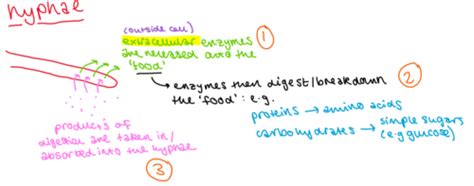 hyphae
(outside cell)
extracellular enzymes ①
are released onto the
'food'
enzymes then digest/breakdown ②
the 'food': e.g.
proteins → amino acids
carbohydrates → simple sugars
(e.g glucose)
products of
digestion are taken in/
absorbed into the hyphae
③